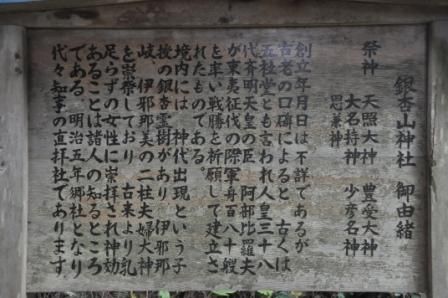 銀杏山神社 御由緒
祭神 天照大神 豊受大神
大名持神 少彦名神
思兼神
創立年月日は不詳であるが
古老の口碑によると 古くは
五社堂とも言われ人皇三十八
代斉明天皇の臣 阿部比羅夫
が東夷征伐の際軍舟百八十艘
を率い戦勝を祈願して建立さ
れたものである。
境内には 神代出現という子
授の銀杏霊樹があり 伊邪那
岐 伊邪那美の二柱夫婦大神
を崇祭しており 古来より乳
足らずの女性に崇拝され神効
あることは諸人の知るところ
である 明治五年郷社となり
代々知事の直拝社であります